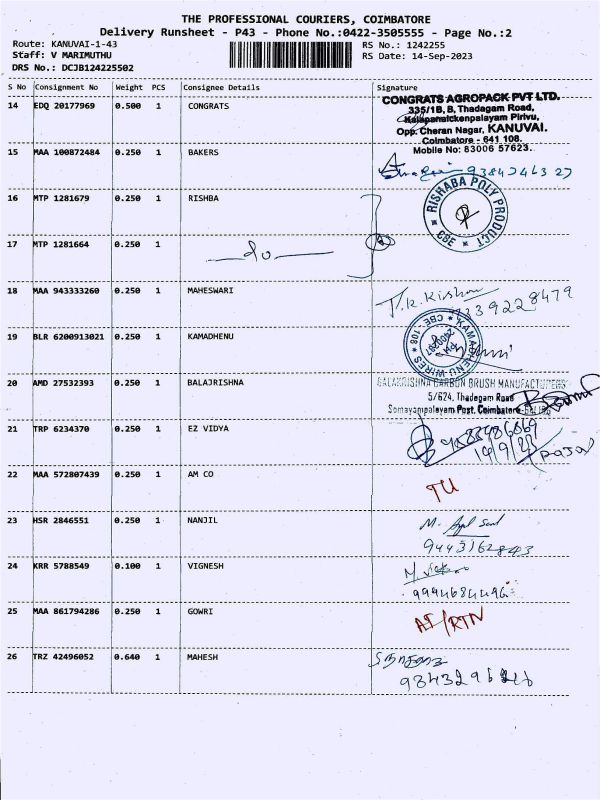 THE PROFESSIONAL COURIERS, COIMBATORE
Delivery Runsheet - P43 - Phone No.:0422-3505555 - Page No.:2
Route: KANUVAI-1-43
RS No.: 1242255
Staff: V MARIMUTHU
RS Date: 14-Sep-2023
DRS No.: DCJB124225502
S No Consignment No Weight PCS Consignee Details Signature
14 EDQ 20177969 0.500 1 CONGRATS
CONGRATS AGROPACK PVT LTD.
335/1B, B, Thadagam Road,
Kalapanaickenpalayam Pirivu,
Opp. Cheran Nagar, KANUVAI.
Coimbatore - 641 108.
Mobile No: 83006 57623.
15 MAA 100872484 0.250 1 BAKERS
16 MTP 1281679 0.250 1 RISHBA
RISHABA POLY PRODUCT
CBE
17 MTP 1281664 0.250 1
do
18 MAA 943333260 0.250 1 MAHESWARI
19 BLR 6200913021 0.250 1 KAMADHENU
KAMADHENU WIRES
CBE - 108
20 AMD 27532393 0.250 1 BALAJRISHNA
BALAKRISHNA CARBON BRUSH MANUFACTURERS
5/624, Thadagam Road
Somayampalayam Post, Coimbatore
21 TRP 6234370 0.250 1 EZ VIDYA
14/9/23
22 MAA 572807439 0.250 1 AM CO
TU
23 HSR 2846551 0.250 1 NANJIL
24 KRR 5788549 0.100 1 VIGNESH
9994684496
25 MAA 861794286 0.250 1 GOWRI
26 TRZ 42496052 0.640 1 MAHESH